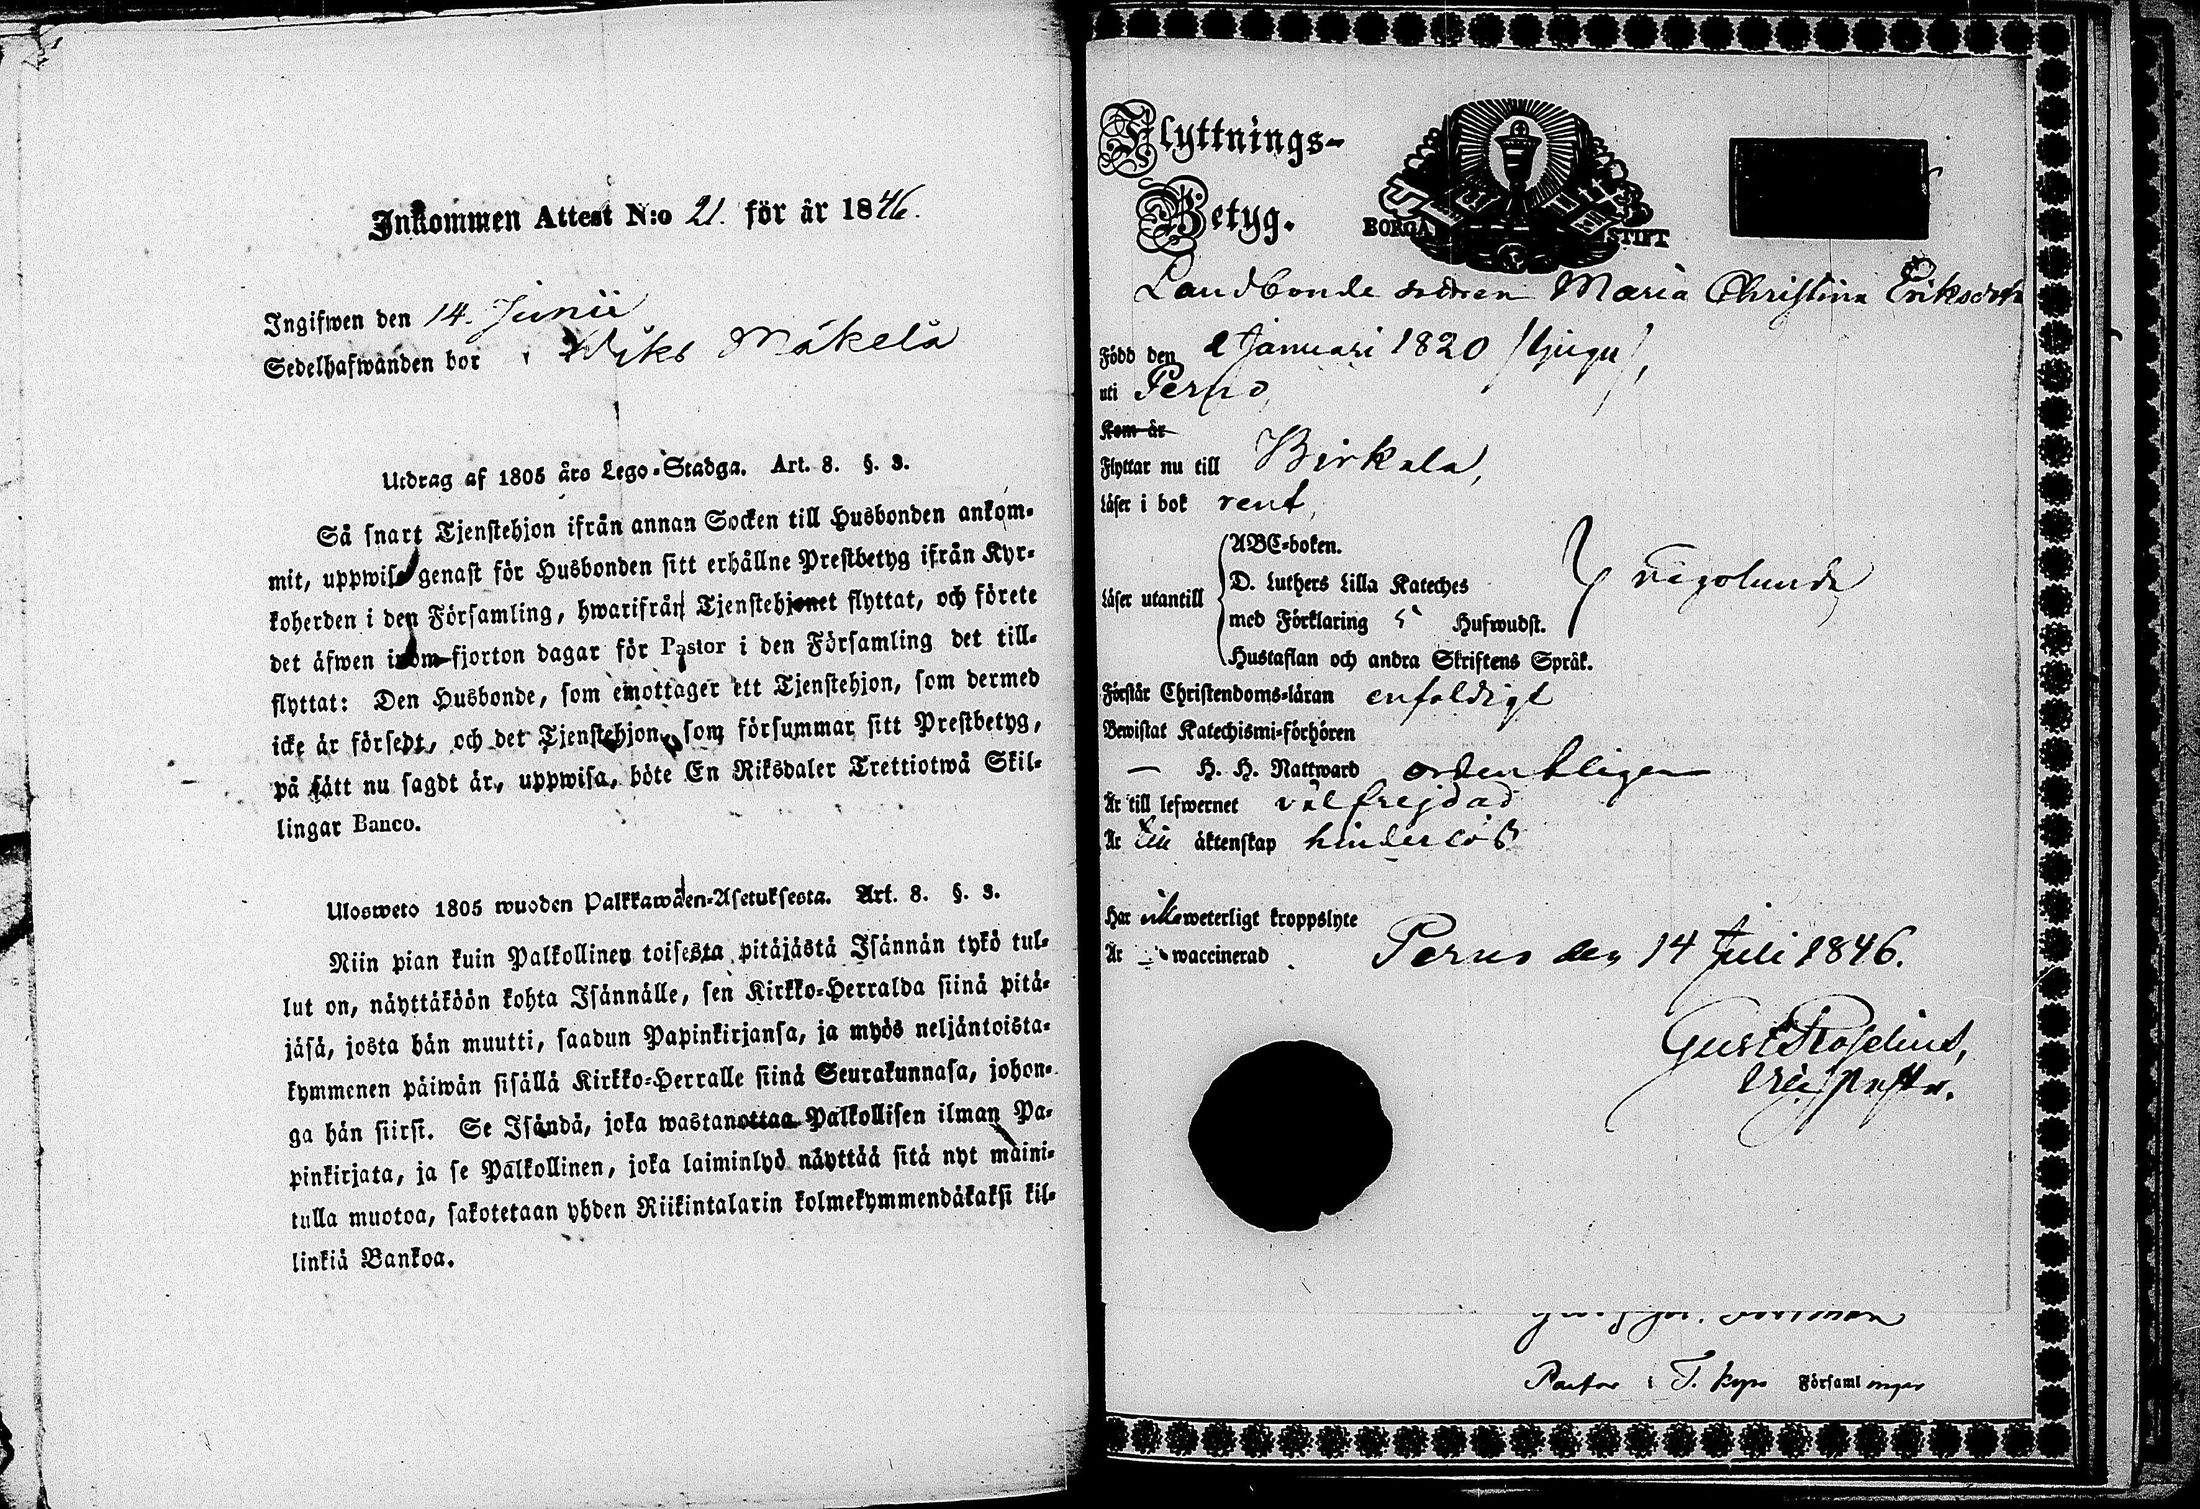 Inkommen Attest N:o 21. för år 1846.
Ingifwen den 14. Junii
Sedelhafwanden bor i Wiks Mäkelä
Utdrag af 1805 års Lego-Stadga. Art. 8. §. 3.
Så snart Tjenstehjon ifrån annan Socken till Husbonden ankom-
mit, uppwise genast för Husbonden sitt erhållne Prestbetyg ifrån Kyr-
koherden i den Församling, hwarifrån Tjenstehjonet flyttat, och förete
det äfwen inom fjorton dagar för Pastor i den Församling det till-
flyttat: Den Husbonde, som emottager ett Tjenstehjon, som dermed
icke är försedt, och det Tjenstehjon, som försummar sitt Prestbetyg,
på sätt nu sagdt är, uppwisa, böte En Riksdaler Trettiotwå Skil-
lingar Banco.
Uloswetο 1805 wuoden Palkkawäen-Asetuksesta. Art. 8. §. 3.
Niin pian kuin Palkollinen toisesta pitäjästä Isännän tykö tul-
lut on, näyttäköön kohta Isännälle, sen Kirkko-Herralda siinä pitä-
jäsä, josta hän muutti, saadun Papinkirjansa, ja myös neljäntoista-
kymmenen päiwän sisällä Kirkko-Herralle siinä Seurakunnasa, johon-
ga hän siirsi. Se Isändä, joka wastanottaa Palkollisen ilman Pa-
pinkirjata, ja se Palkollinen, joka laiminlyö näyttää sitä nyt maini-
tulla muotoa, sakotetaan yhden Riikintalarin kolmekymmendäkaksi kil-
linkiä Bankoa.
Flyttnings-
Betyg.
BORGÅ STIFT
Landbonde Maria Christina Eriksdotr
Född den 2 Januari 1820 /tjugu/,
uti Perno,
Kom år
Flyttar nu till Birkala,
Läser i bok rent,
Läser utantill
ABC-boken.
D. Luthers Lilla Kateches
med Förklaring 5 Hufwudst.
Hustaflan och andra Skriftens Språk.
någolunda
Förstår Christendoms-läran enfaldigt
Bewistat Katechismi-förhören
— H. H. Nattward ordentligen
Är till lefwernet välfrejdad
Är till äktenskap hinderlös
Har icke weterligt kroppslyte
Är waccinerad
Perno den 14 Juli 1846.
Gust
Pastor i T. kyro Församlingar